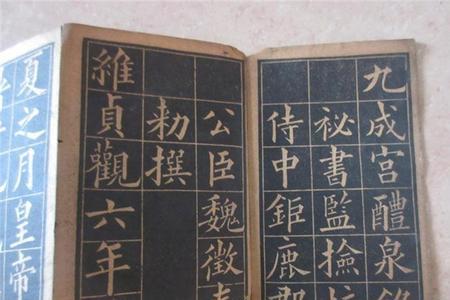 九成宮醴泉銘
祕書監撿
侍中鉅鹿郡
公臣魏徵奉
勑撰
維貞觀六年
夏之月皇帝